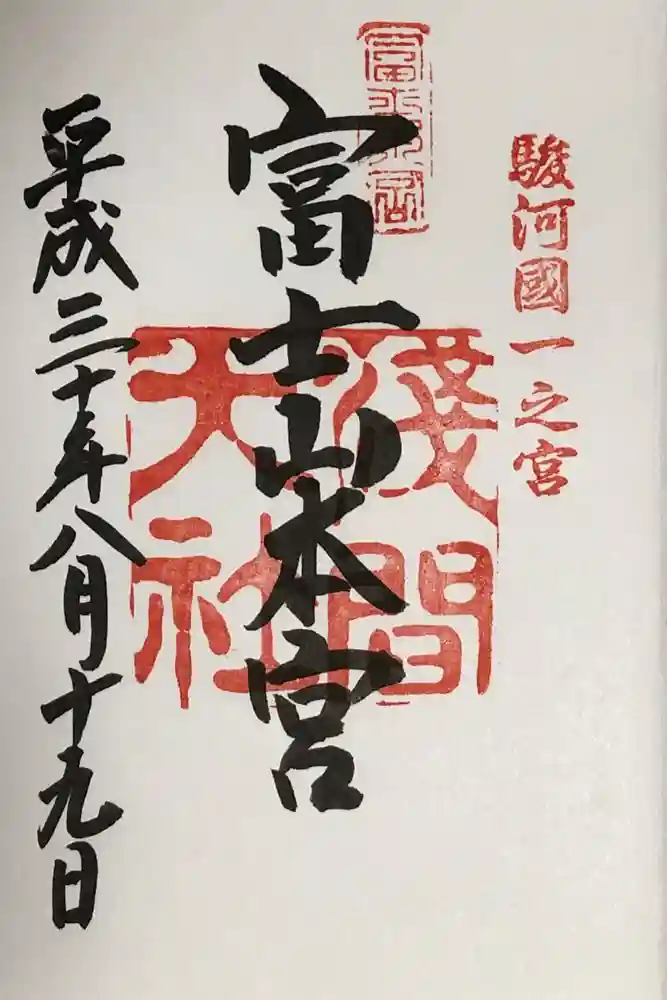 駿河國一之宮
富士山本宮
富士山本宮
淺間
大社
平成三十年八月十九日